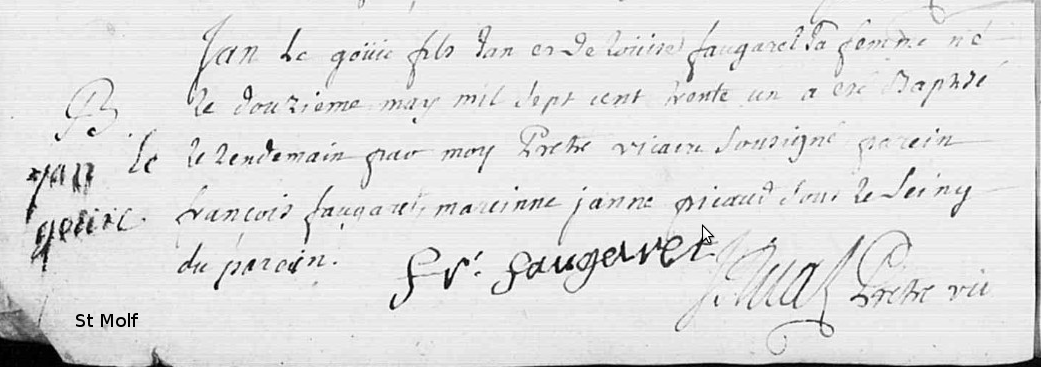 Jan Le goüic fils Jan et de Loüise faugaret sa femme né
le douzieme may mil sept cent trente un a eté Baptisé
B
le lendemain par moy Pretre vicaire Sousigné parein
jan le
gouic
françois faugaret, mareinne janne picaud sous le seing
du parein.
fr. faugaret
Pretre vic
St Molf